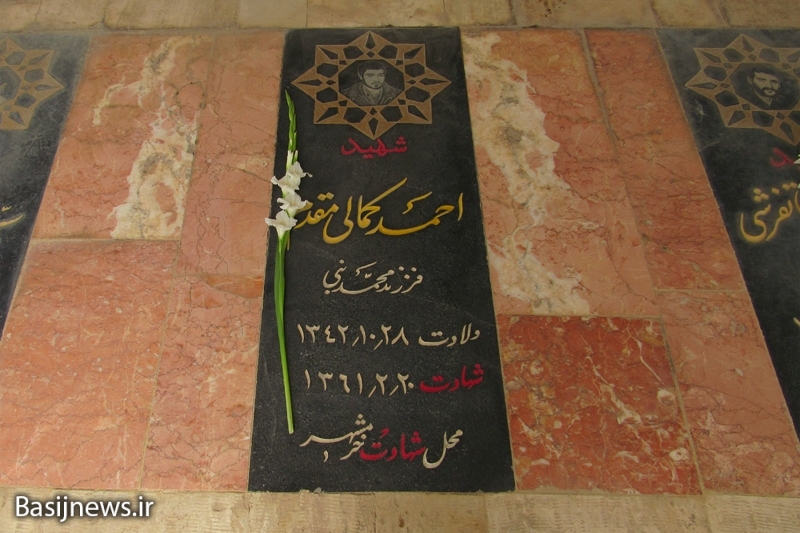 شهید
احمد کمالی مقدم
فرزند محمد نبی
ولادت ۱۳۴۲٫۱۰٫۲۸
شهادت ۱۳۶۱٫۲٫۲۰
محل شهادت خرمشهر
تفرشی
Basijnews.ir